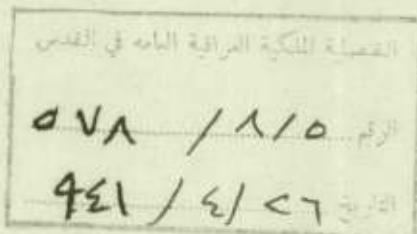 القنصلية الملكية العراقية العامه في القدس
الرقم ٥ / ٨ / ٥٧٨
التاريخ ٢٦ / ٤ / ٩٤١